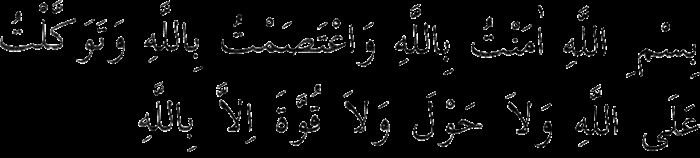 بِسْمِ اللَّهِ اٰمَنْتُ بِاللَّهِ وَاعْتَصَمْتُ بِاللَّهِ وَتَوَكَّلْتُ
عَلَى اللَّهِ وَلاَ حَوْلَ وَلاَ قُوَّةَ اِلاَّ بِاللَّهِ